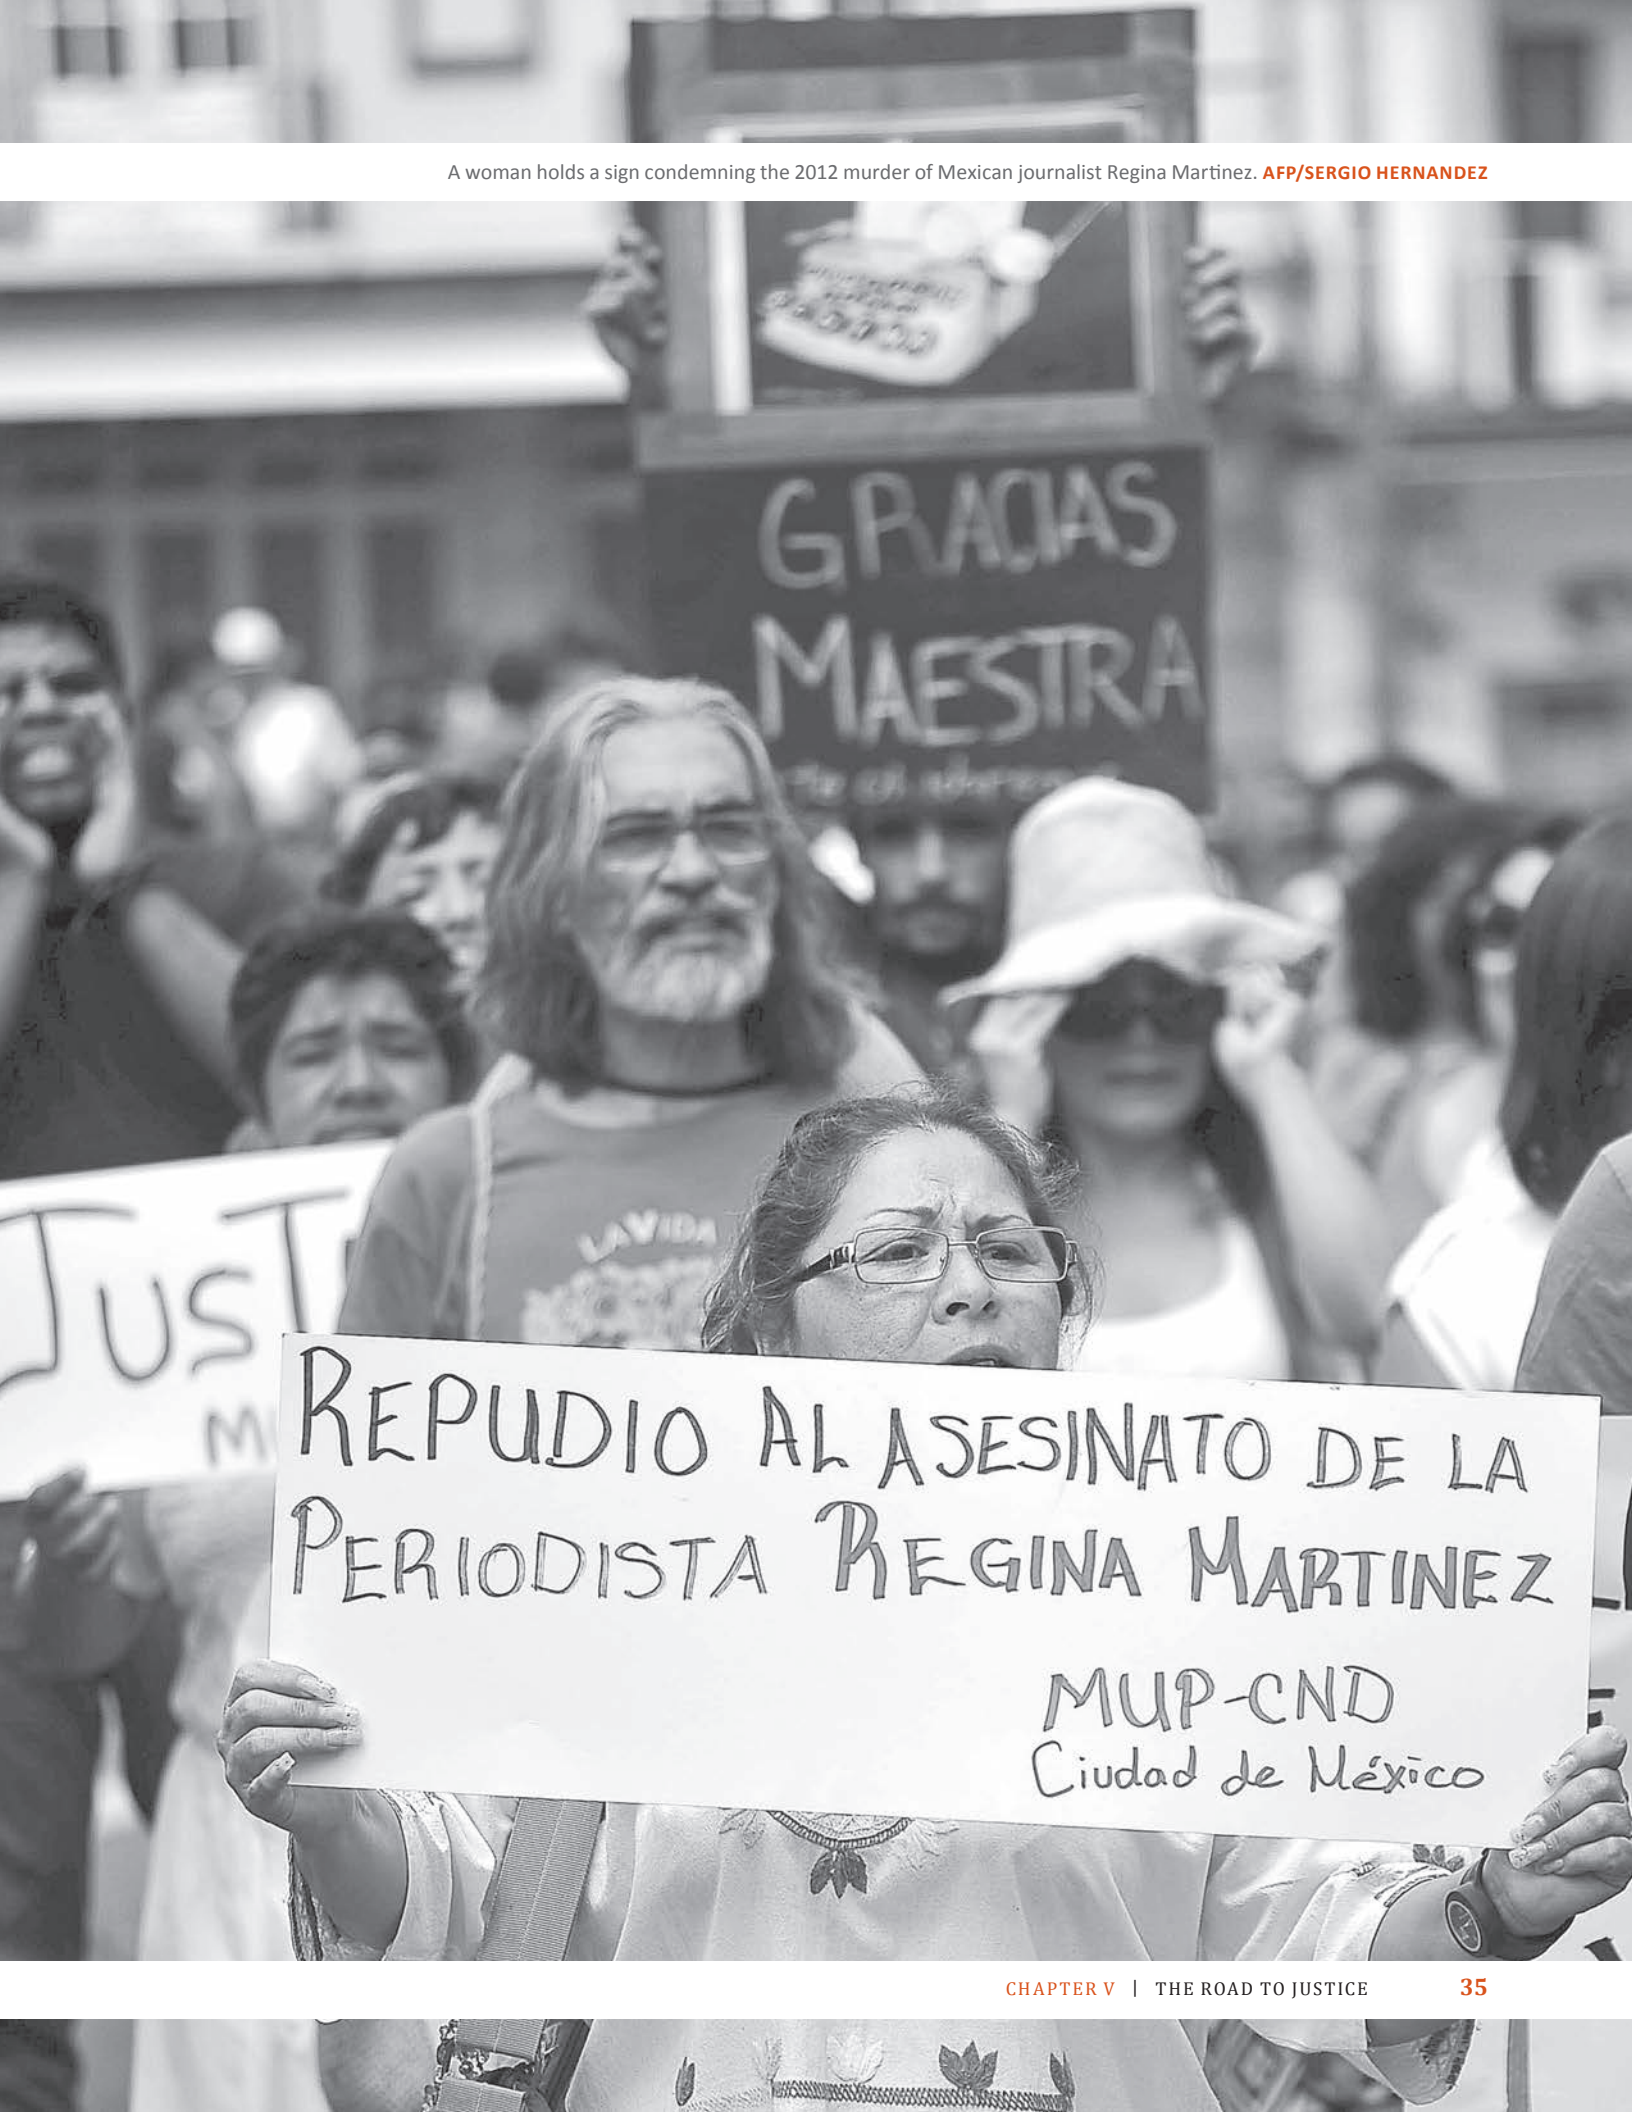 A woman holds a sign condemning the 2012 murder of Mexican journalist Regina Martinez. AFP/SERGIO HERNANDEZ
GRACIAS
MAESTRA
LA VIDA
JUST
M
REPUDIO AL ASESINATO DE LA
PERIODISTA REGINA MARTINEZ
MUP-CND
Ciudad de México
CHAPTER V | THE ROAD TO JUSTICE 35